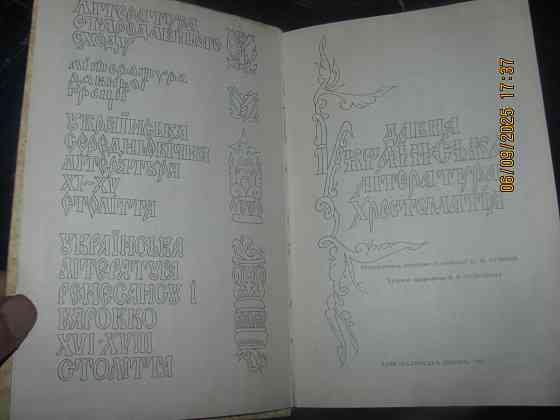 ЛІТЕРАТУРА
СТАРОДАВНЬОГО
СХОДУ
ЛІТЕРАТУРА
ДАВНЬОЇ
ГРЕЦІЇ
УКРАЇНСЬКА
СЕРЕДНЬОВІЧНА
ЛІТЕРАТУРА
XI-XV
СТОЛІТТЯ
УКРАЇНСЬКА
ЛІТЕРАТУРА
РЕНЕСАНСУ І
БАРОККО
XVI-XVIII
СТОЛІТТЯ
ДАВНЯ
УКРАЇНСЬКА
ЛІТЕРАТУРА
ХРЕСТОМАТІЯ
06/09/2025 17:37